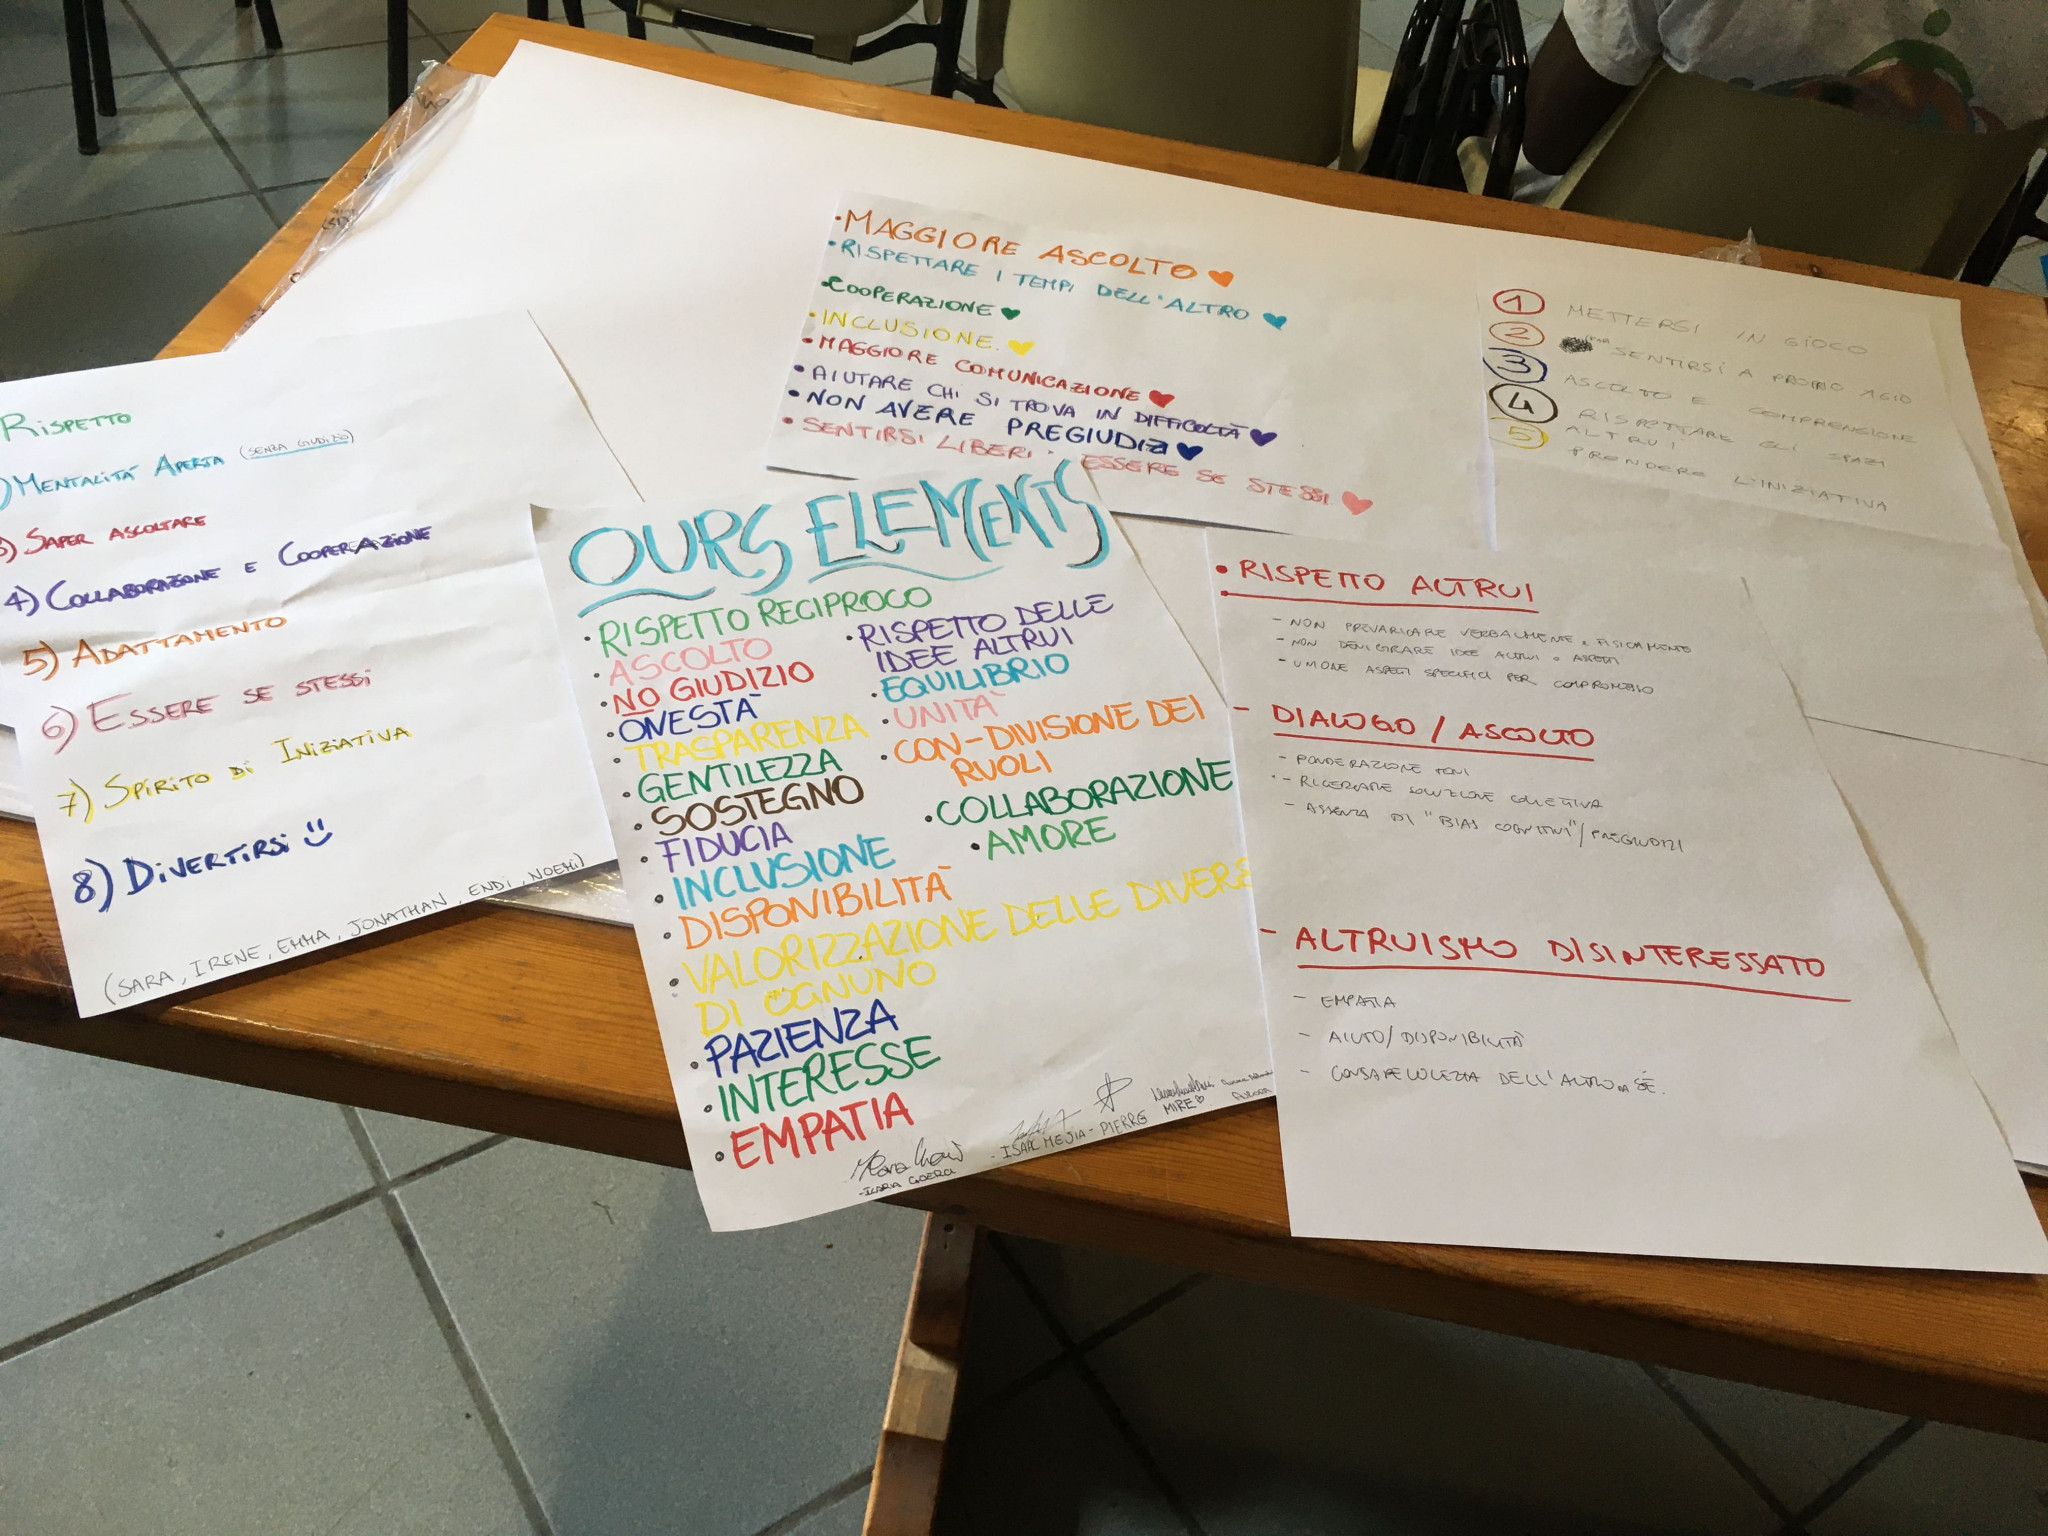 RISPETTO
) MENTALITÀ APERTA (SENZA GIUDIZIO)
3) SAPER ASCOLTARE
4) COLLABORAZIONE E COOPERAZIONE
5) ADATTAMENTO
6) ESSERE SE STESSI
7) SPIRITO DI INIZIATIVA
8) DIVERTIRSI
(SARA, IRENE, EMMA, JONATHAN, ENDI, NOEMI)
• MAGGIORE ASCOLTO
• RISPETTARE I TEMPI DELL'ALTRO
• COOPERAZIONE
• INCLUSIONE.
• MAGGIORE COMUNICAZIONE
• AIUTARE CHI SI TROVA IN DIFFICOLTÀ
• NON AVERE PREGIUDIZI
• SENTIRSI LIBERI: ESSERE SE STESSI
1 METTERSI IN GIOCO
2 SENTIRSI A PROPRIO AGIO
3 ASCOLTO E COMPRENSIONE
4 RISPETTARE GLI SPAZI
ALTRUI
5 PRENDERE L'INIZIATIVA
OURS ELEMENTS
• RISPETTO RECIPROCO
• ASCOLTO
• NO GIUDIZIO
• ONESTÀ
• TRASPARENZA
• GENTILEZZA
• SOSTEGNO
• FIDUCIA
• INCLUSIONE
• DISPONIBILITÀ
• VALORIZZAZIONE DELLE DIVERS
DI OGNUNO
• PAZIENZA
• INTERESSE
• EMPATIA
• RISPETTO DELLE
IDEE ALTRUI
• EQUILIBRIO
• UNITÀ
• CON-DIVISIONE DEI
RUOLI
• COLLABORAZIONE
• AMORE
- ISAAC MEJIA - PIERRE
MIRE
- ILARIA
• RISPETTO ALTRUI
- NON PREVARICARE VERBALMENTE e FISICAMENTE
- NON DENIGRARE IDEE ALTRUI o ASPETTI
- UNIONE ASPETTI SPECIFICI PER COMPROMESSO
- DIALOGO / ASCOLTO
- PONDERAZIONE TONI
- RICERCARE SOLUZIONE COLLETTIVA
- ASSENZA DI "BIAS COGNITIVI"/PREGIUDIZI
- ALTRUISMO DISINTERESSATO
- EMPATIA
- AIUTO/DISPONIBILITÀ
- CONSAPEVOLEZZA DELL'ALTRO DA SÉ.